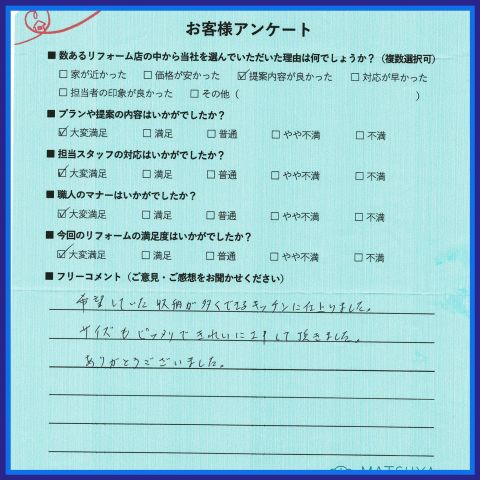 お客様アンケート
■ 数あるリフォーム店の中から当社を選んでいただいた理由は何でしょうか？（複数選択可）
□ 家が近かった □ 価格が安かった ☑ 提案内容が良かった □ 対応が早かった
□ 担当者の印象が良かった □ その他（ ）
■ プランや提案の内容はいかがでしたか？
☑ 大変満足 □ 満足 □ 普通 □ やや不満 □ 不満
■ 担当スタッフの対応はいかがでしたか？
☑ 大変満足 □ 満足 □ 普通 □ やや不満 □ 不満
■ 職人のマナーはいかがでしたか？
☑ 大変満足 □ 満足 □ 普通 □ やや不満 □ 不満
■ 今回のリフォームの満足度はいかがでしたか？
☑ 大変満足 □ 満足 □ 普通 □ やや不満 □ 不満
■ フリーコメント（ご意見・ご感想をお聞かせください）
希望していた収納が多くできるキッチンに仕上りました。
サイズもピッタリできれいに工事して頂きました。
ありがとうございました。
MATSUYA